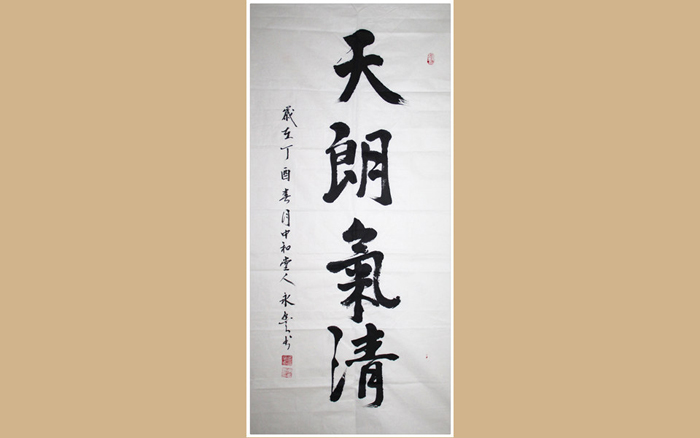 天朗氣清
歲在丁酉春月中和堂人永